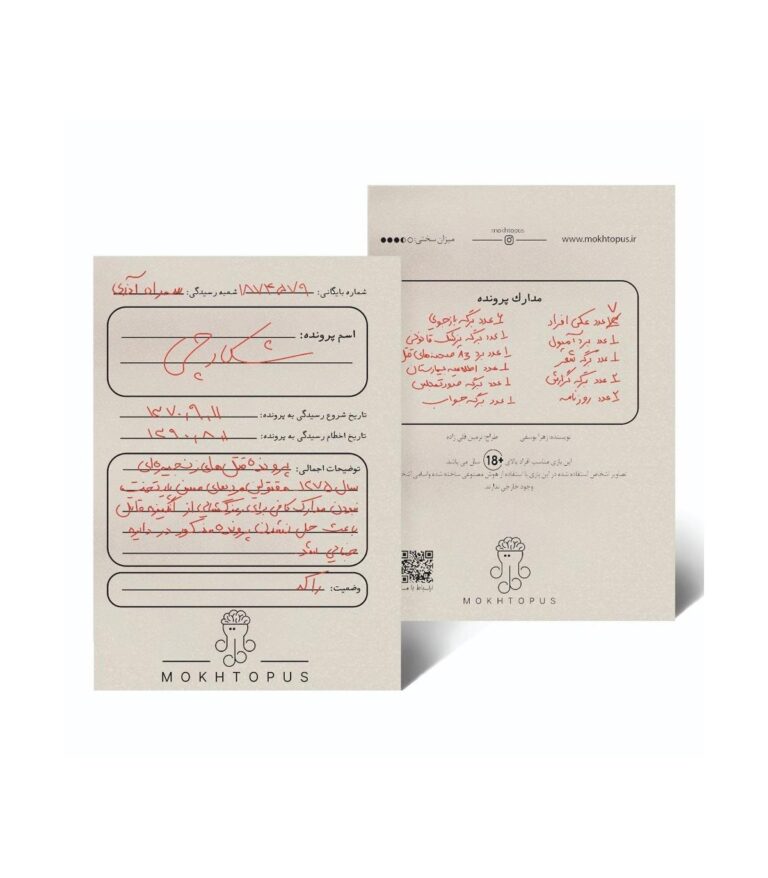 شماره بایگانی: ۱۸۷۴۵۷۹ شعبه رسیدگی:
اسم پرونده:
شکارچی
تاریخ شروع رسیدگی به پرونده: ۱۳۷۰,۹,۱۱
تاریخ اختتام رسیدگی به پرونده: ۱۳۹۰,۸,۱۱
توضیحات اجمالی: پرونده قتل های زنجیره ای
سال ۱۲۷۵ مقتولین مردهای مسن پایتخت
نبودن مدارک کافی برای رمزگشایی از انگیزه قاتل
باعث حل نشدن پرونده مذکور در دایره
جنایی شد
وضعیت: راکد
MOKHTOPUS
mokhtopus
www.mokhtopus.ir
میزان سختی:
مدارک پرونده
۷ عدد عکس افراد
۱ عدد برد آمپول
۱ عدد برگه
۲ عدد برگه گزارش
۲ عدد روزنامه
۶ عدد برگه بازجویی
۱ عدد برگه پزشک قانونی
۱ عدد برد A3 صحنه های قتل
۱ عدد اطلاعیه بیمارستان
۱ عدد برگه
۱ عدد برگه جواب
نویسنده: زهرا یوسفی طراح: نرمین قلی زاده
این بازی مناسب افراد بالای +18 سال می باشد
تصاویر اشخاص استفاده شده در این بازی با استفاده از هوش مصنوعی ساخته شده واسامی
وجود خارجی ندارند.
ارتباط با
MOKHTOPUS